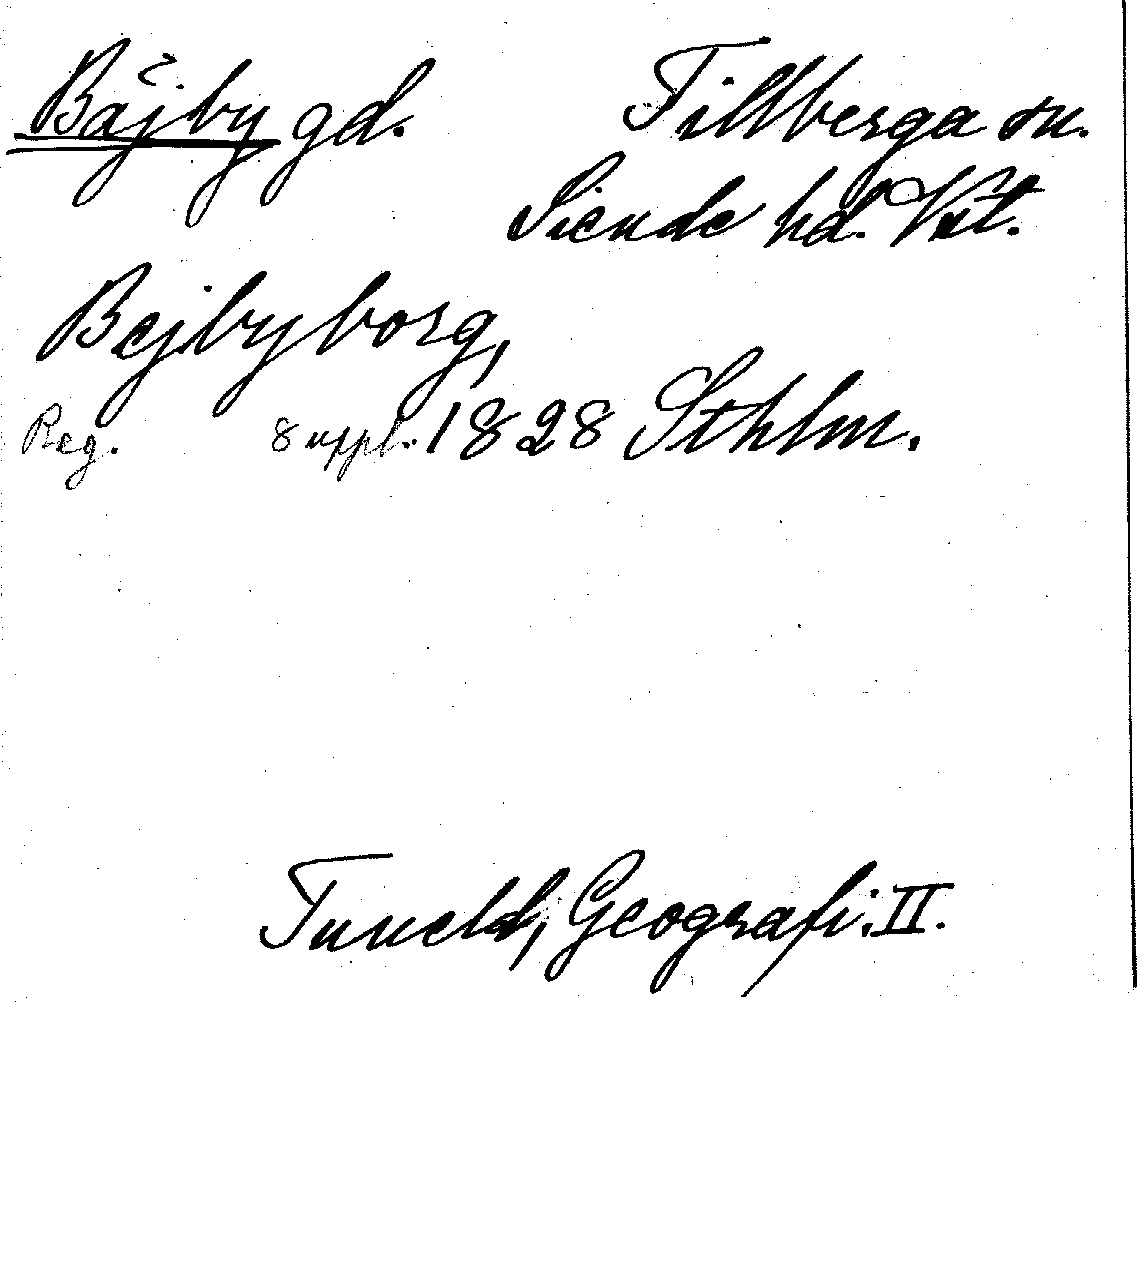 Bäjby gd. Tillberga sn.
Siende hd. Vstm.
Bejbyborg,
Reg. 8 uppl. 1828 Sthlm.
Tuneld, Geografi. II.